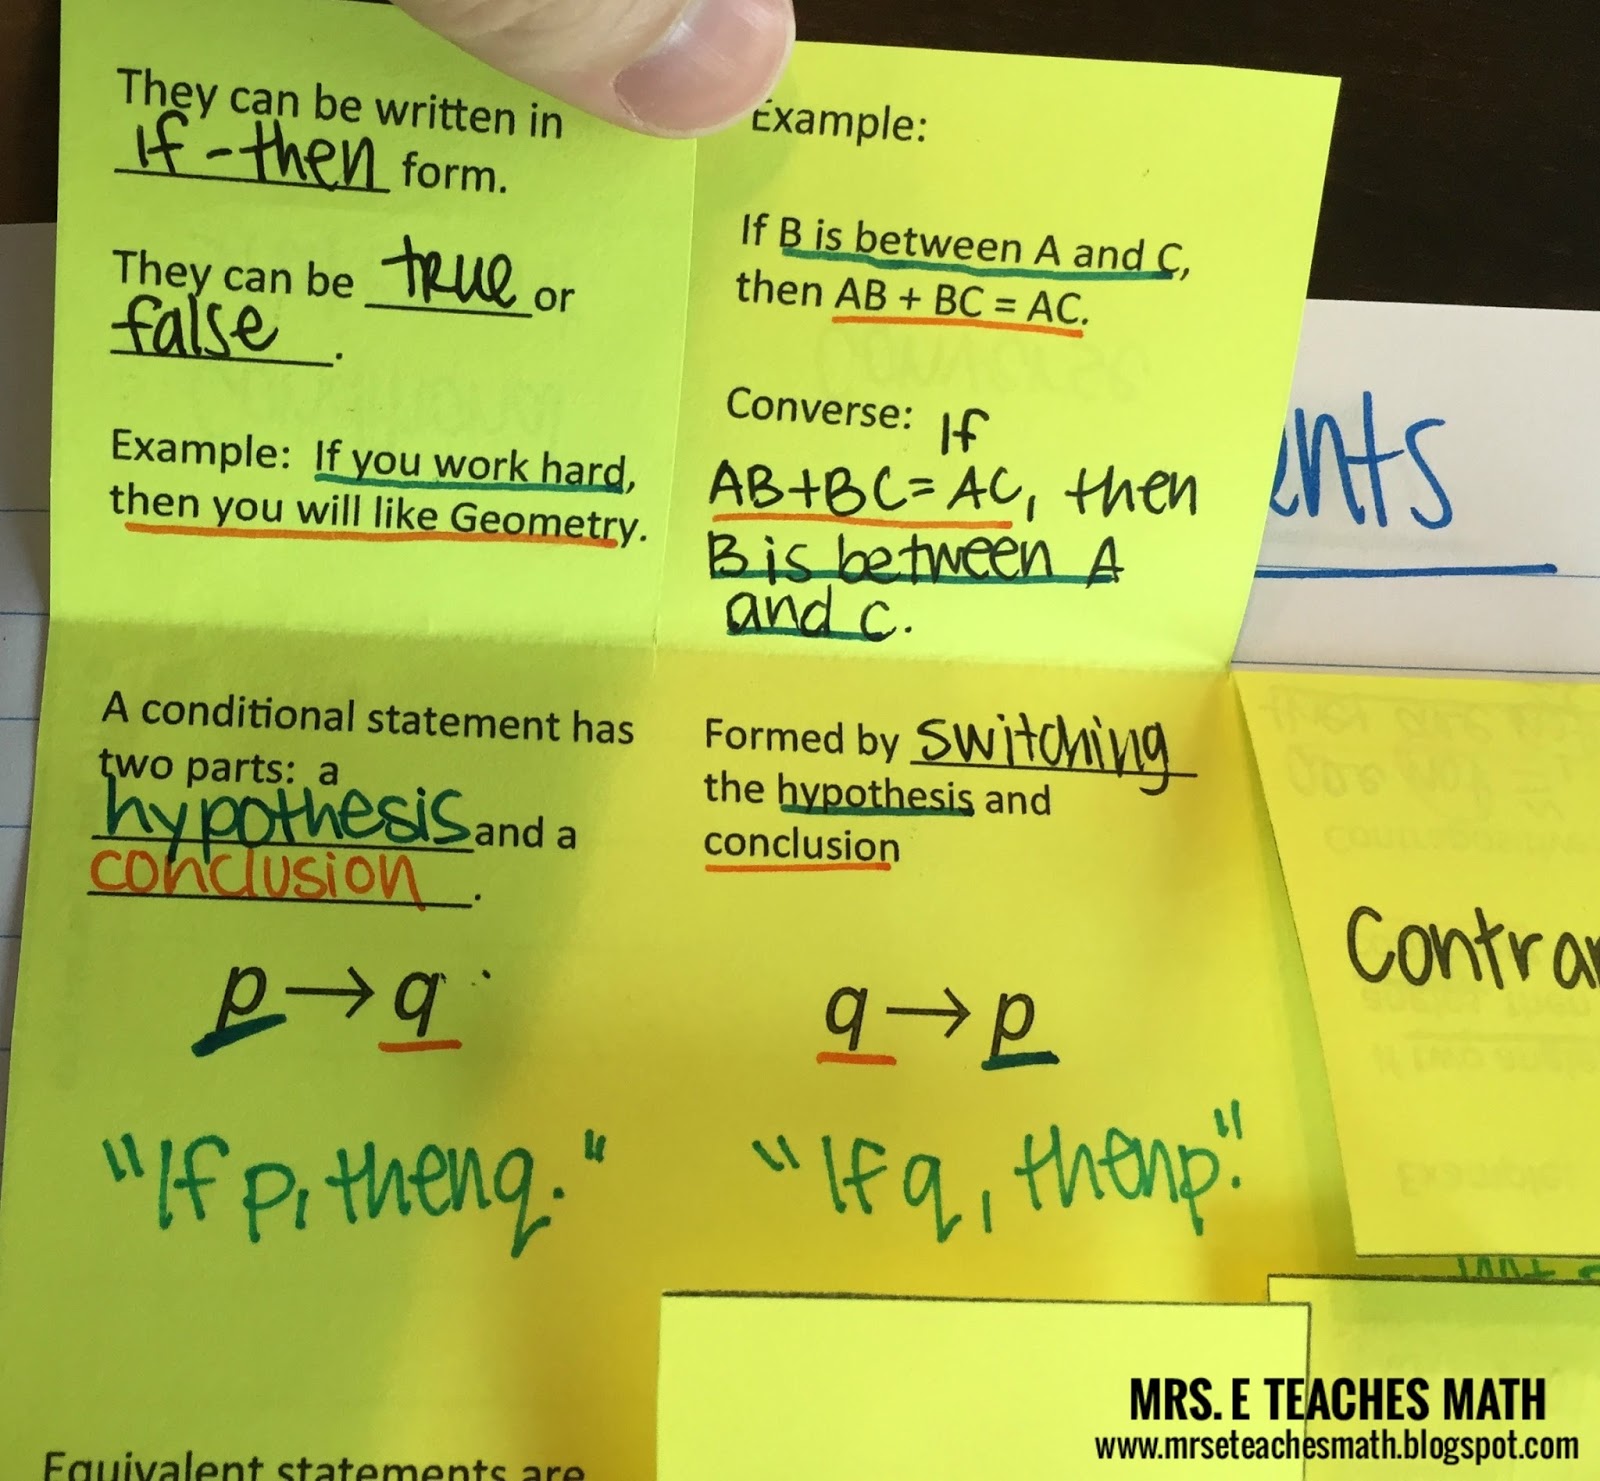 They can be written in
If-then form.
They can be true or
false.
Example: If you work hard,
then you will like Geometry.
A conditional statement has
two parts: a
hypothesis and a
conclusion.
p → q
"If p, then q."
Equivalent statements are
Example:
If B is between A and C,
then AB + BC = AC.
Converse: If
AB+BC=AC, then
B is between A
and C.
Formed by switching
the hypothesis and
conclusion
q → p
"If q, then p."
MRS. E TEACHES MATH
www.mrseteachesmath.blogspot.com